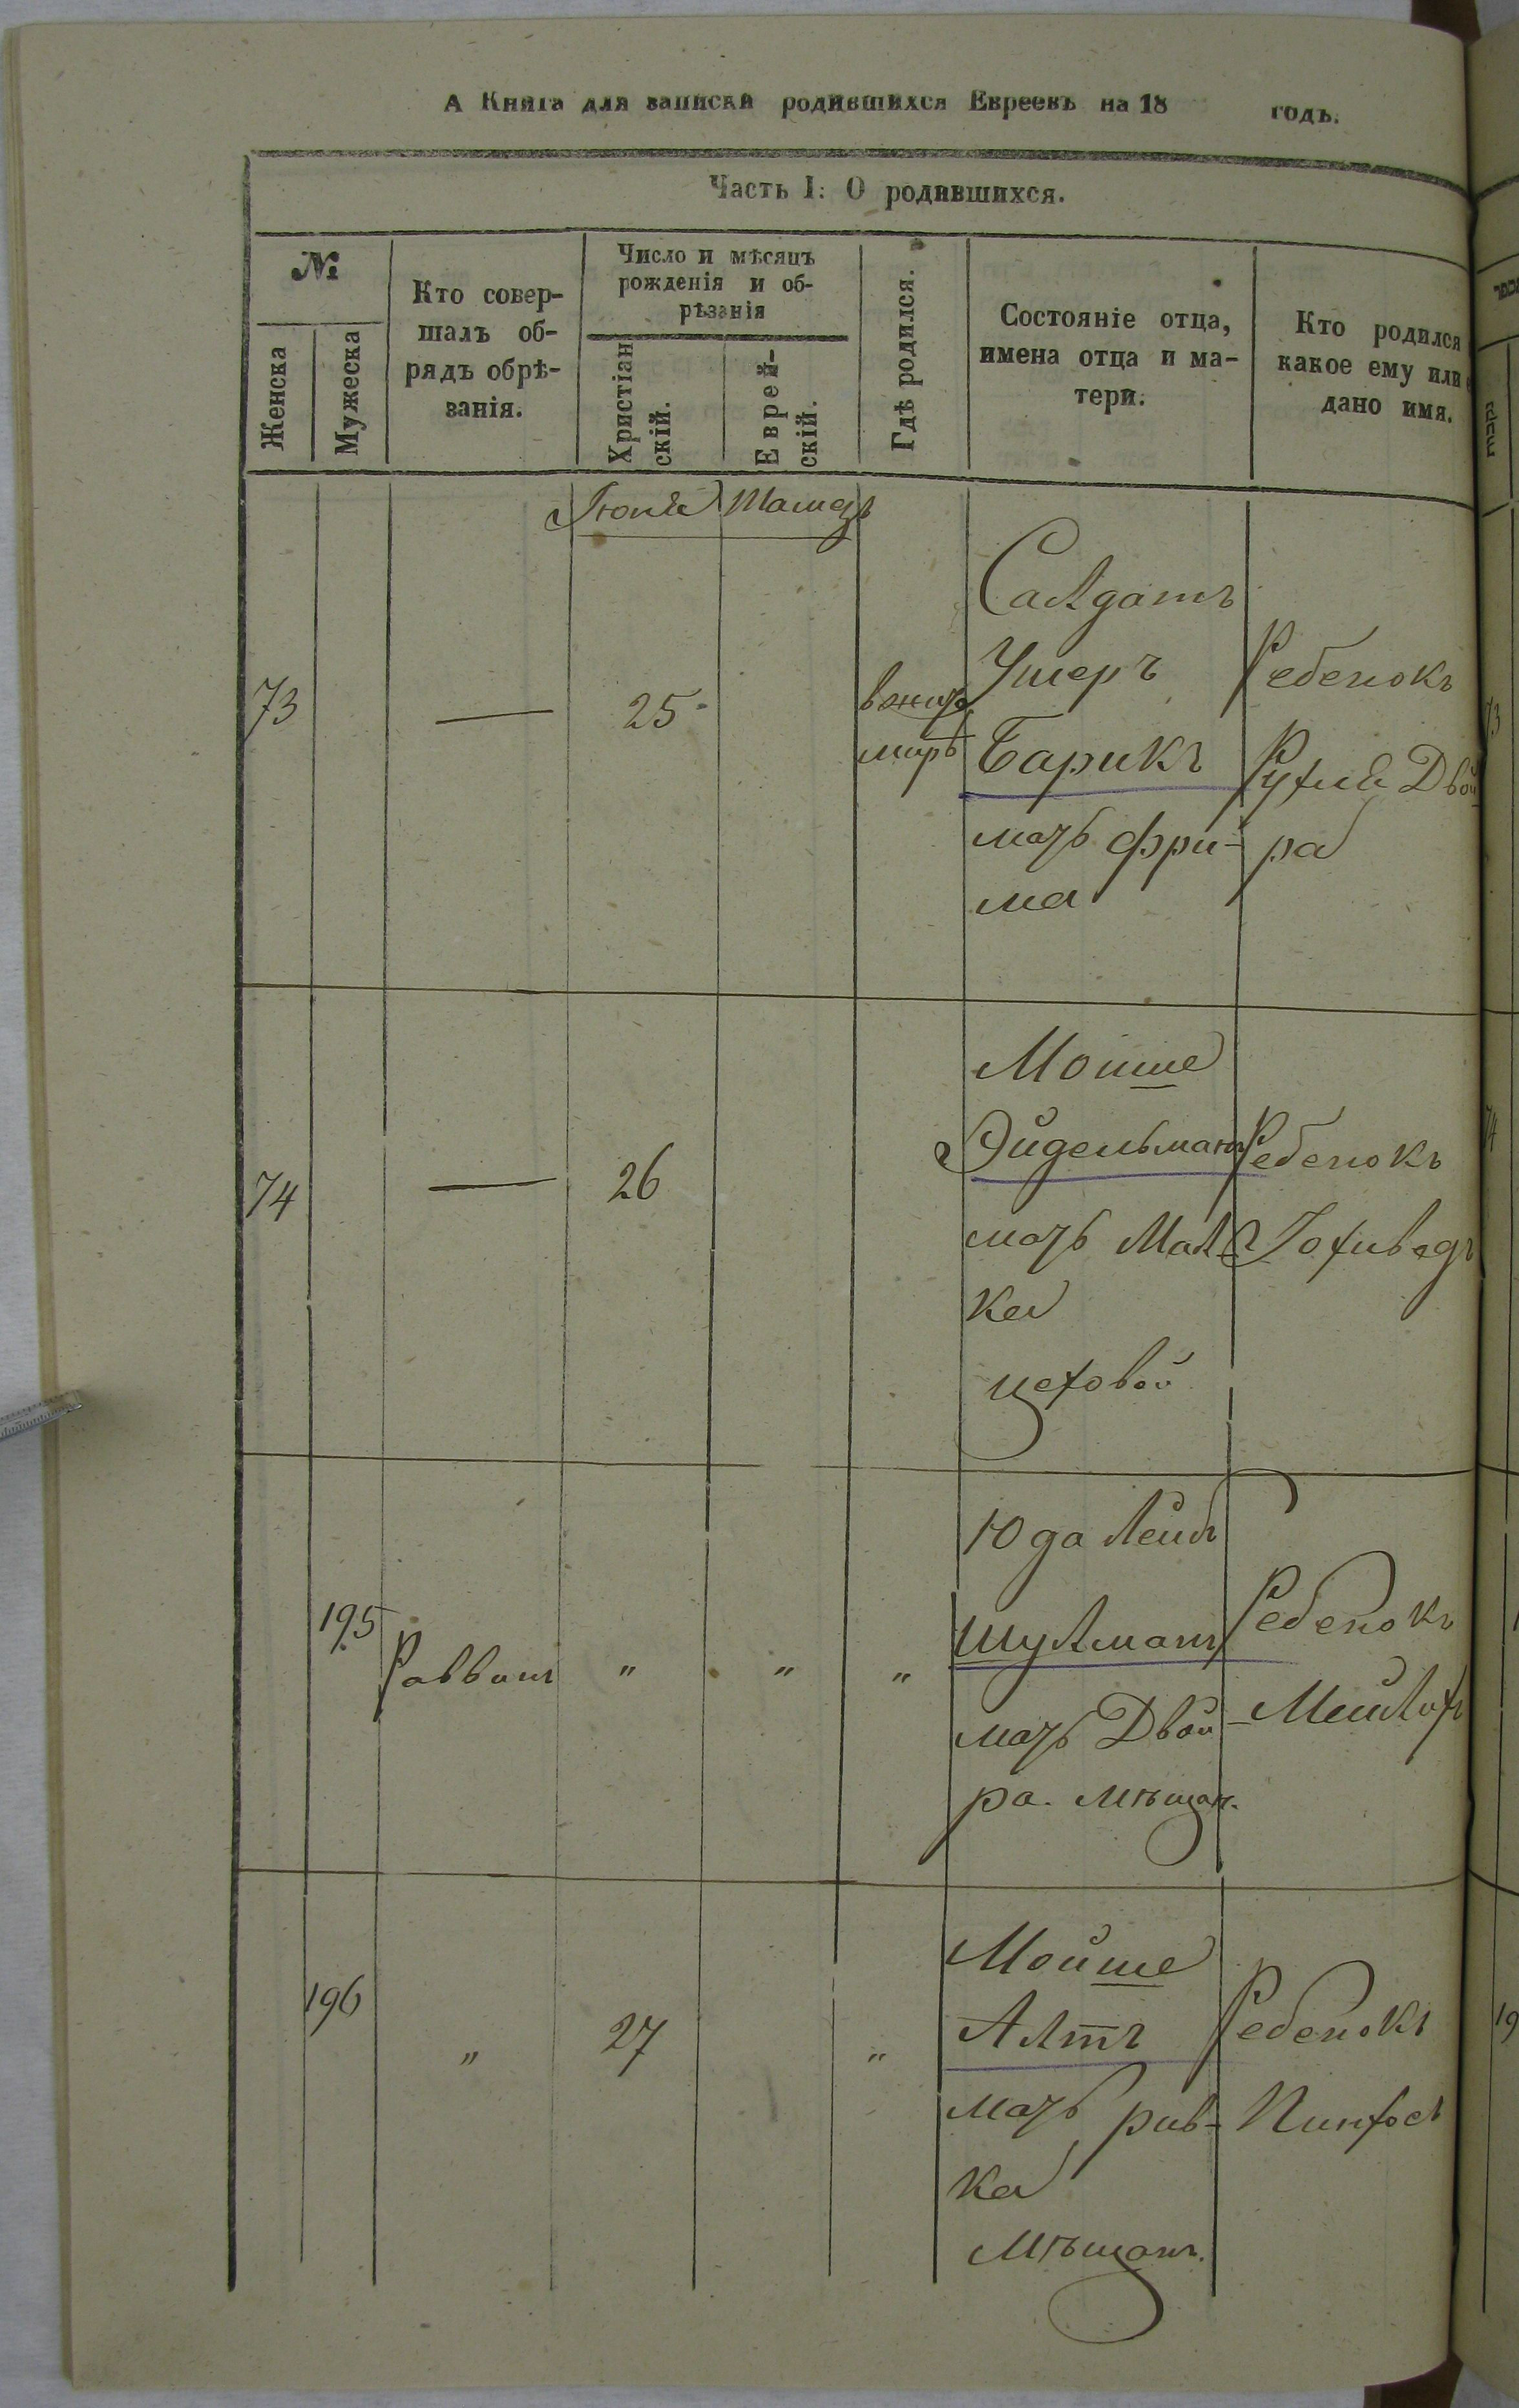 А Книга для записки родившихся Евреевъ на 18 годъ.
Часть I. О родившихся.
№
Женска
Мужеска
Кто совер-
шалъ об-
рядъ обрѣ-
занія.
Число и мѣсяцъ
рожденія и об-
рѣзанія
Христіан
скій.
Еврей-
скій.
Гдѣ родился.
Состояніе отца,
имена отца и ма-
тери.
Кто родился
какое ему или
дано имя.
Іюня
73
—
25
Салдатъ
Ушеръ
Барикъ
мать Фри-
ма
Ребенокъ
Рухля Двой
ра
74
—
26
Мойше
Эйдельманъ
мать Мал-
ка
цеховой
Ребенокъ
Іохиведъ
195
Раввинъ
"
"
"
Юда Лейбъ
Шулманъ
мать Двой-
ра. мѣщан.
Ребенокъ
Мейлахъ
196
"
27
"
Мойше
Алтъ
мать рив-
ка
мѣщанъ.
Ребенокъ
Пинхосъ